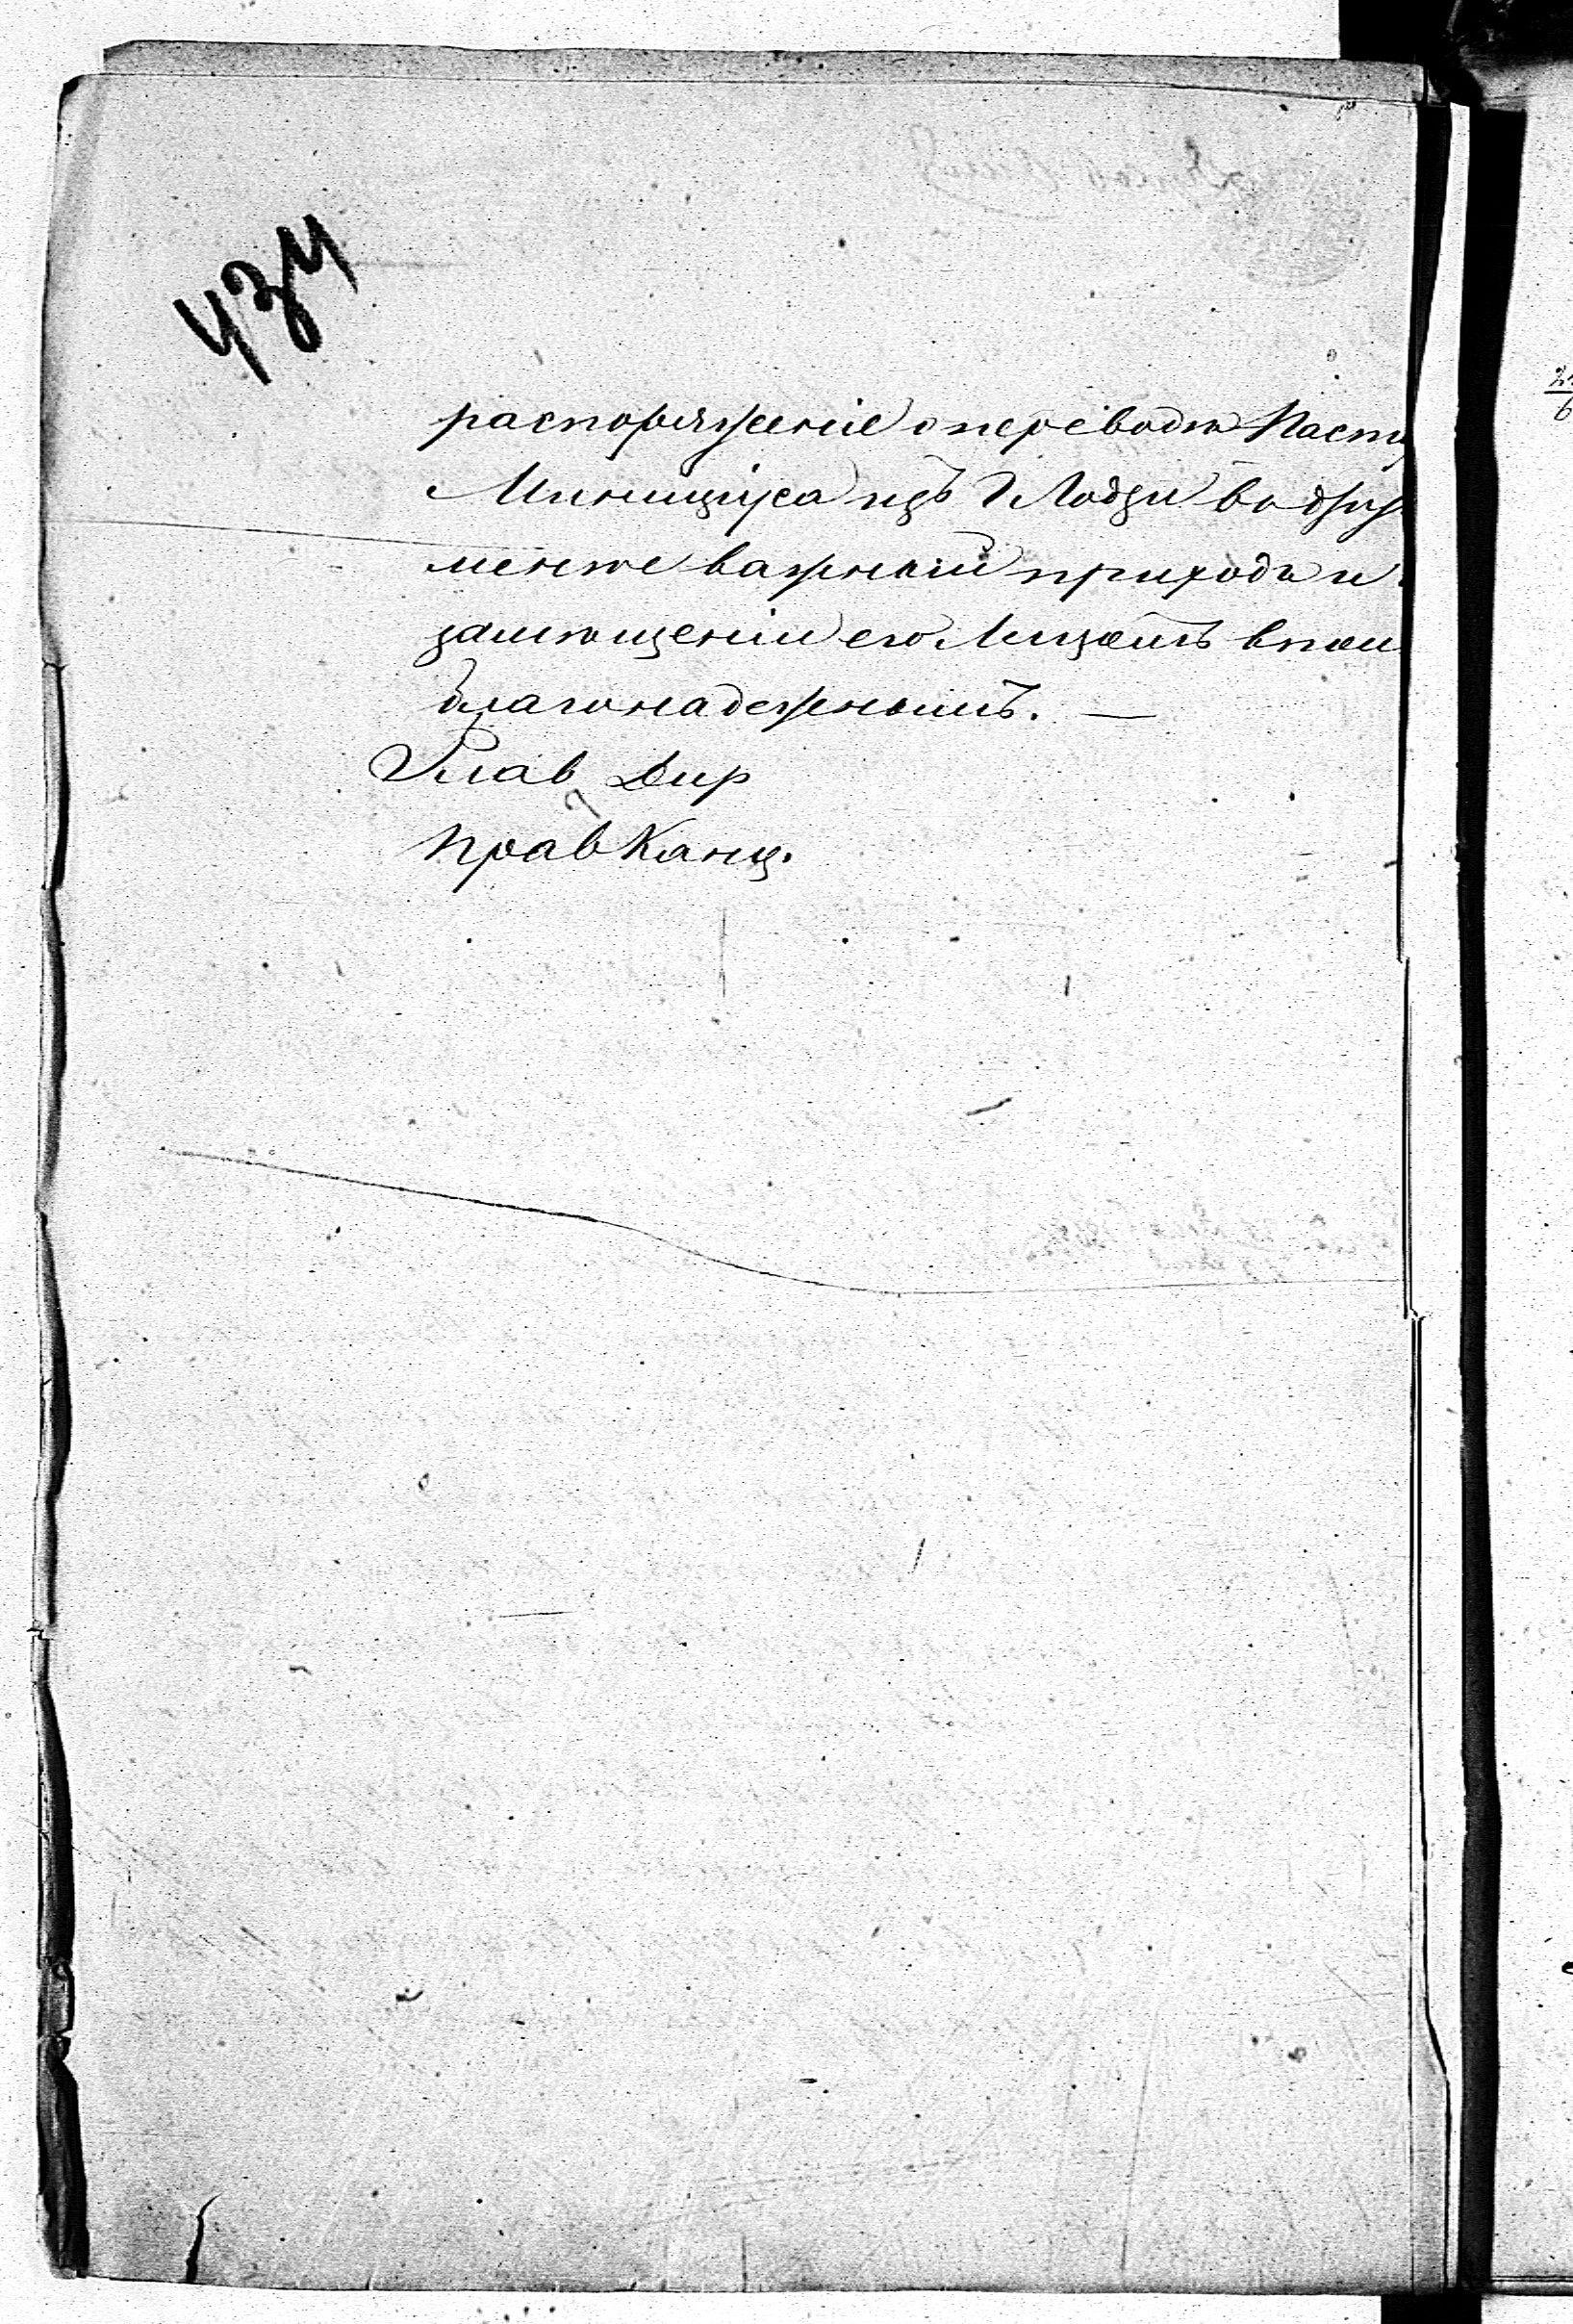 434
распоряженіе о переводѣ Паст
Миницiуса изъ Г Лодзи во друг
менѣе важный приходъ и
замѣщеніи его Лицемъ впол
благонадежнымъ. —
Глав Дир
Прав Канц.